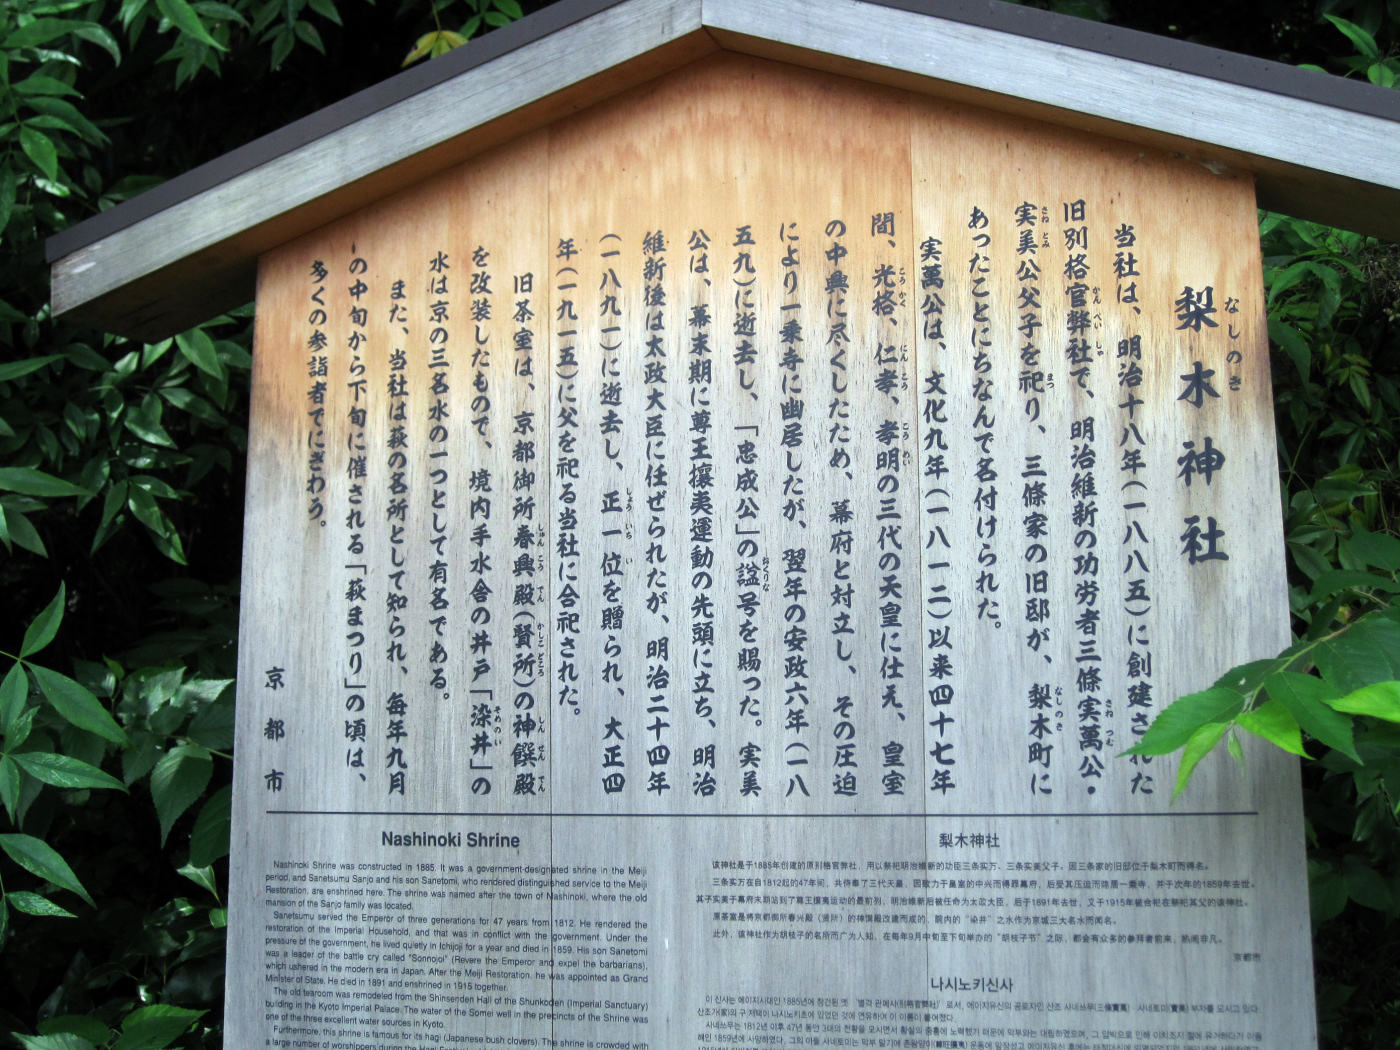 梨木神社
なしのき
当社は、明治十八年(一八八五)に創建された
旧別格官弊社で、明治維新の功労者三條実萬公・
実美公父子を祀り、三條家の旧邸が、梨木町に
あったことにちなんで名付けられた。
実萬公は、文化九年(一八一二)以来四十七年
間、光格、仁孝、孝明の三代の天皇に仕え、皇室
の中興に尽くしたため、幕府と対立し、その圧迫
により一乗寺に幽居したが、翌年の安政六年(一八
五九)に逝去し、「忠成公」の諡号を賜った。実美
公は、幕末期に尊王攘夷運動の先頭に立ち、明治
維新後は太政大臣に任ぜられたが、明治二十四年
(一八九一)に逝去し、正一位を贈られ、大正四
年(一九一五)に父を祀る当社に合祀された。
旧茶室は、京都御所春興殿(賢所)の神饌殿
を改装したもので、境内手水舎の井戸「染井」の
水は京の三名水の一つとして有名である。
また、当社は萩の名所として知られ、毎年九月
の中旬から下旬に催される「萩まつり」の頃は、
多くの参詣者でにぎわう。
京都市
Nashinoki Shrine
Nashinoki Shrine was constructed in 1885. It was a government-designated shrine in the Meiji
period, and Sanetsumu Sanjo and his son Sanetomi, who rendered distinguished service to the Meiji
Restoration, are enshrined here. The shrine was named after the town of Nashinoki, where the old
mansion of the Sanjo family was located.
Sanetsumu served the Emperor of three generations for 47 years from 1812. He rendered the
restoration of the Imperial Household, and that was in conflict with the government. Under the
pressure of the government, he lived quietly in Ichijoji for a year and died in 1859. His son Sanetomi
was a leader of the battle cry called "Sonnojoi" (Revere the Emperor and expel the barbarians),
which ushered in the modern era in Japan. After the Meiji Restoration, he was appointed as Grand
Minister of State. He died in 1891 and enshrined in 1915 together.
The old tearoom was remodeled from the Shinsenden Hall of the Shunkoden (Imperial Sanctuary)
building in the Kyoto Imperial Palace. The water of the Somei well in the precincts of the Shrine was
one of the three excellent water sources in Kyoto.
Furthermore, this shrine is famous for its hagi (Japanese bush clovers). The shrine is crowded with
a large number of worshippers during the Hagi
梨木神社
该神社是于1885年创建的原别格官弊社，用以祭祀明治维新的功臣三条实万、三条实美父子。因三条家的旧邸位于梨木町而得名。
三条实万在自1812起的47年间，共侍奉了三代天皇，因致力于皇室的中兴而得罪幕府，后受其压迫而隐居一乘寺，并于次年的1859年去世。
其子实美于幕府末期站到了尊王攘夷运动的最前列，明治维新后被任命为太政大臣，后于1891年去世，又于1915年被合祀在祭祀其父的该神社。
原茶室是将京都御所春兴殿（贤所）的神馔殿改建而成的，院内的“染井”之水作为京城三大名水而闻名。
此外，该神社作为胡枝子的名所而广为人知，在每年9月中旬至下旬举办的“胡枝子节”之际，都会有众多的参拜者前来，热闹非凡。
京都市
나시노키신사